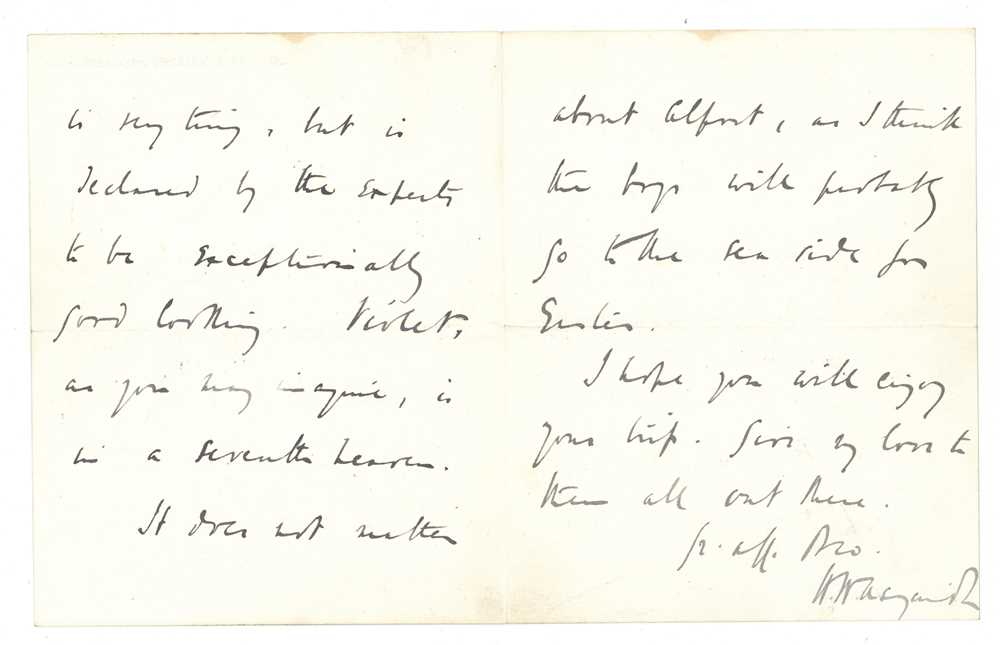 is anything, but is
declared by the experts
to be exceptionally
good looking. Violet,
as you may imagine, is
in a seventh heaven.
It does not matter
about Alfort, as I think
the boys will probably
go to the sea side for
Easter.
I hope you will enjoy
your trip. Give my love to
them all out there.
Yr. aff. Bro.
H H Asquith